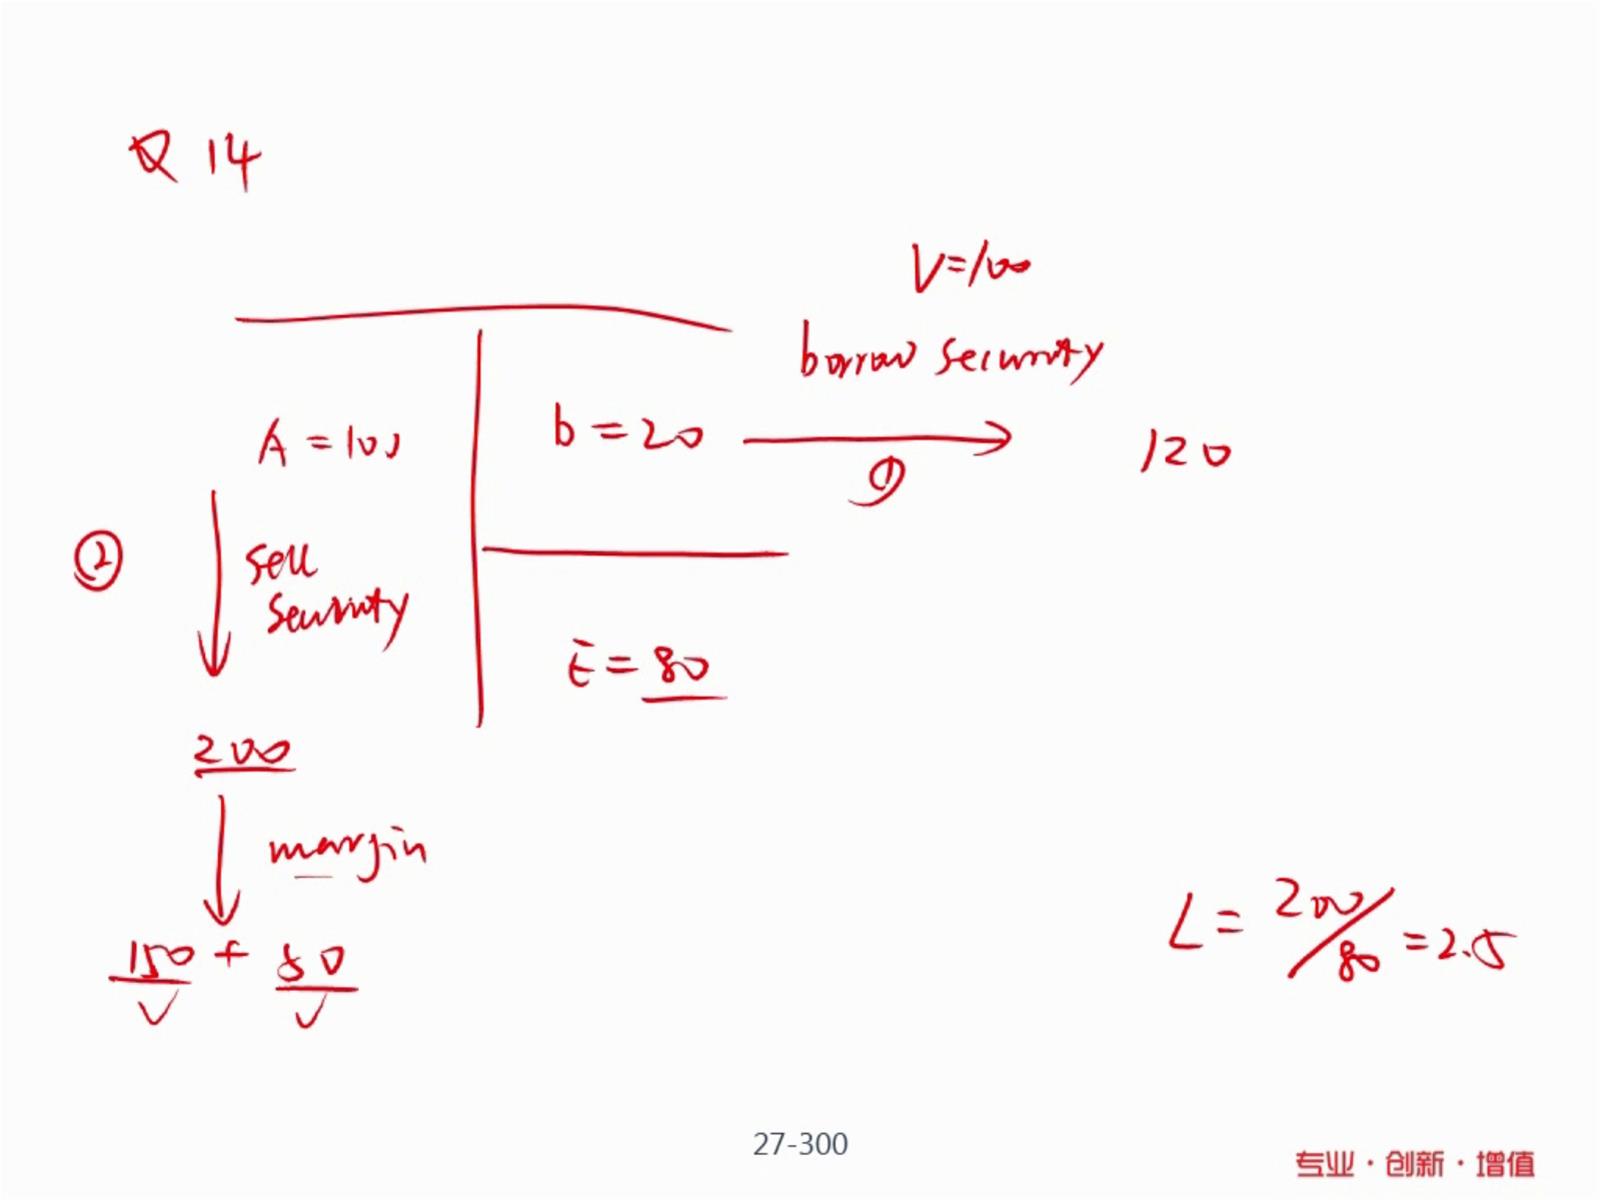 Q 14
V=100
borrow security
A = 100
b = 20
①
120
②
sell
security
E = 80
200
margin
150 + 50
L = 200/80 = 2.5
27-300
专业·创新·增值